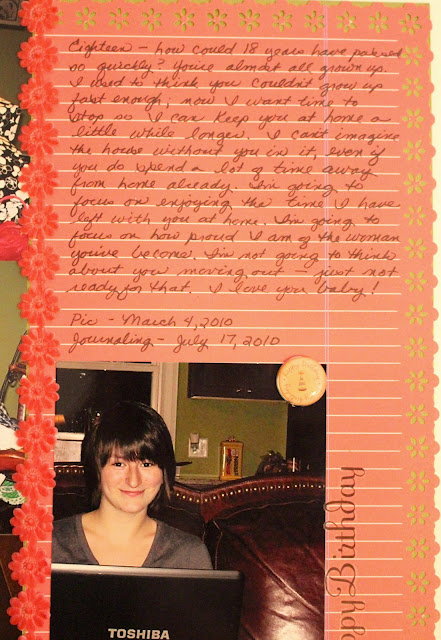 Eighteen - how could 18 years have passed
so quickly? you're almost all grown up.
I used to think you couldn't grow up
fast enough, now I want time to
stop so I can keep you at home a
little while longer. I can't imagine
the house without you in it, even if
you do spend a lot of time away
from home already. I'm going to
focus on enjoying the time I have
left with you at home. I'm going to
focus on how proud I am of the woman
you've become. I'm not going to think
about you moving out - just not
ready for that. I love you baby!
Pic - March 4, 2010
Journaling - July 17, 2010
ppy Birthday
TOSHIBA